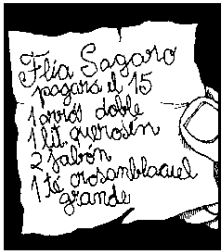 Flia Sagaro
pagará el 15
1 arrós doble
1 lit querosén
2 jabón
1 té orosanblacuel
grande